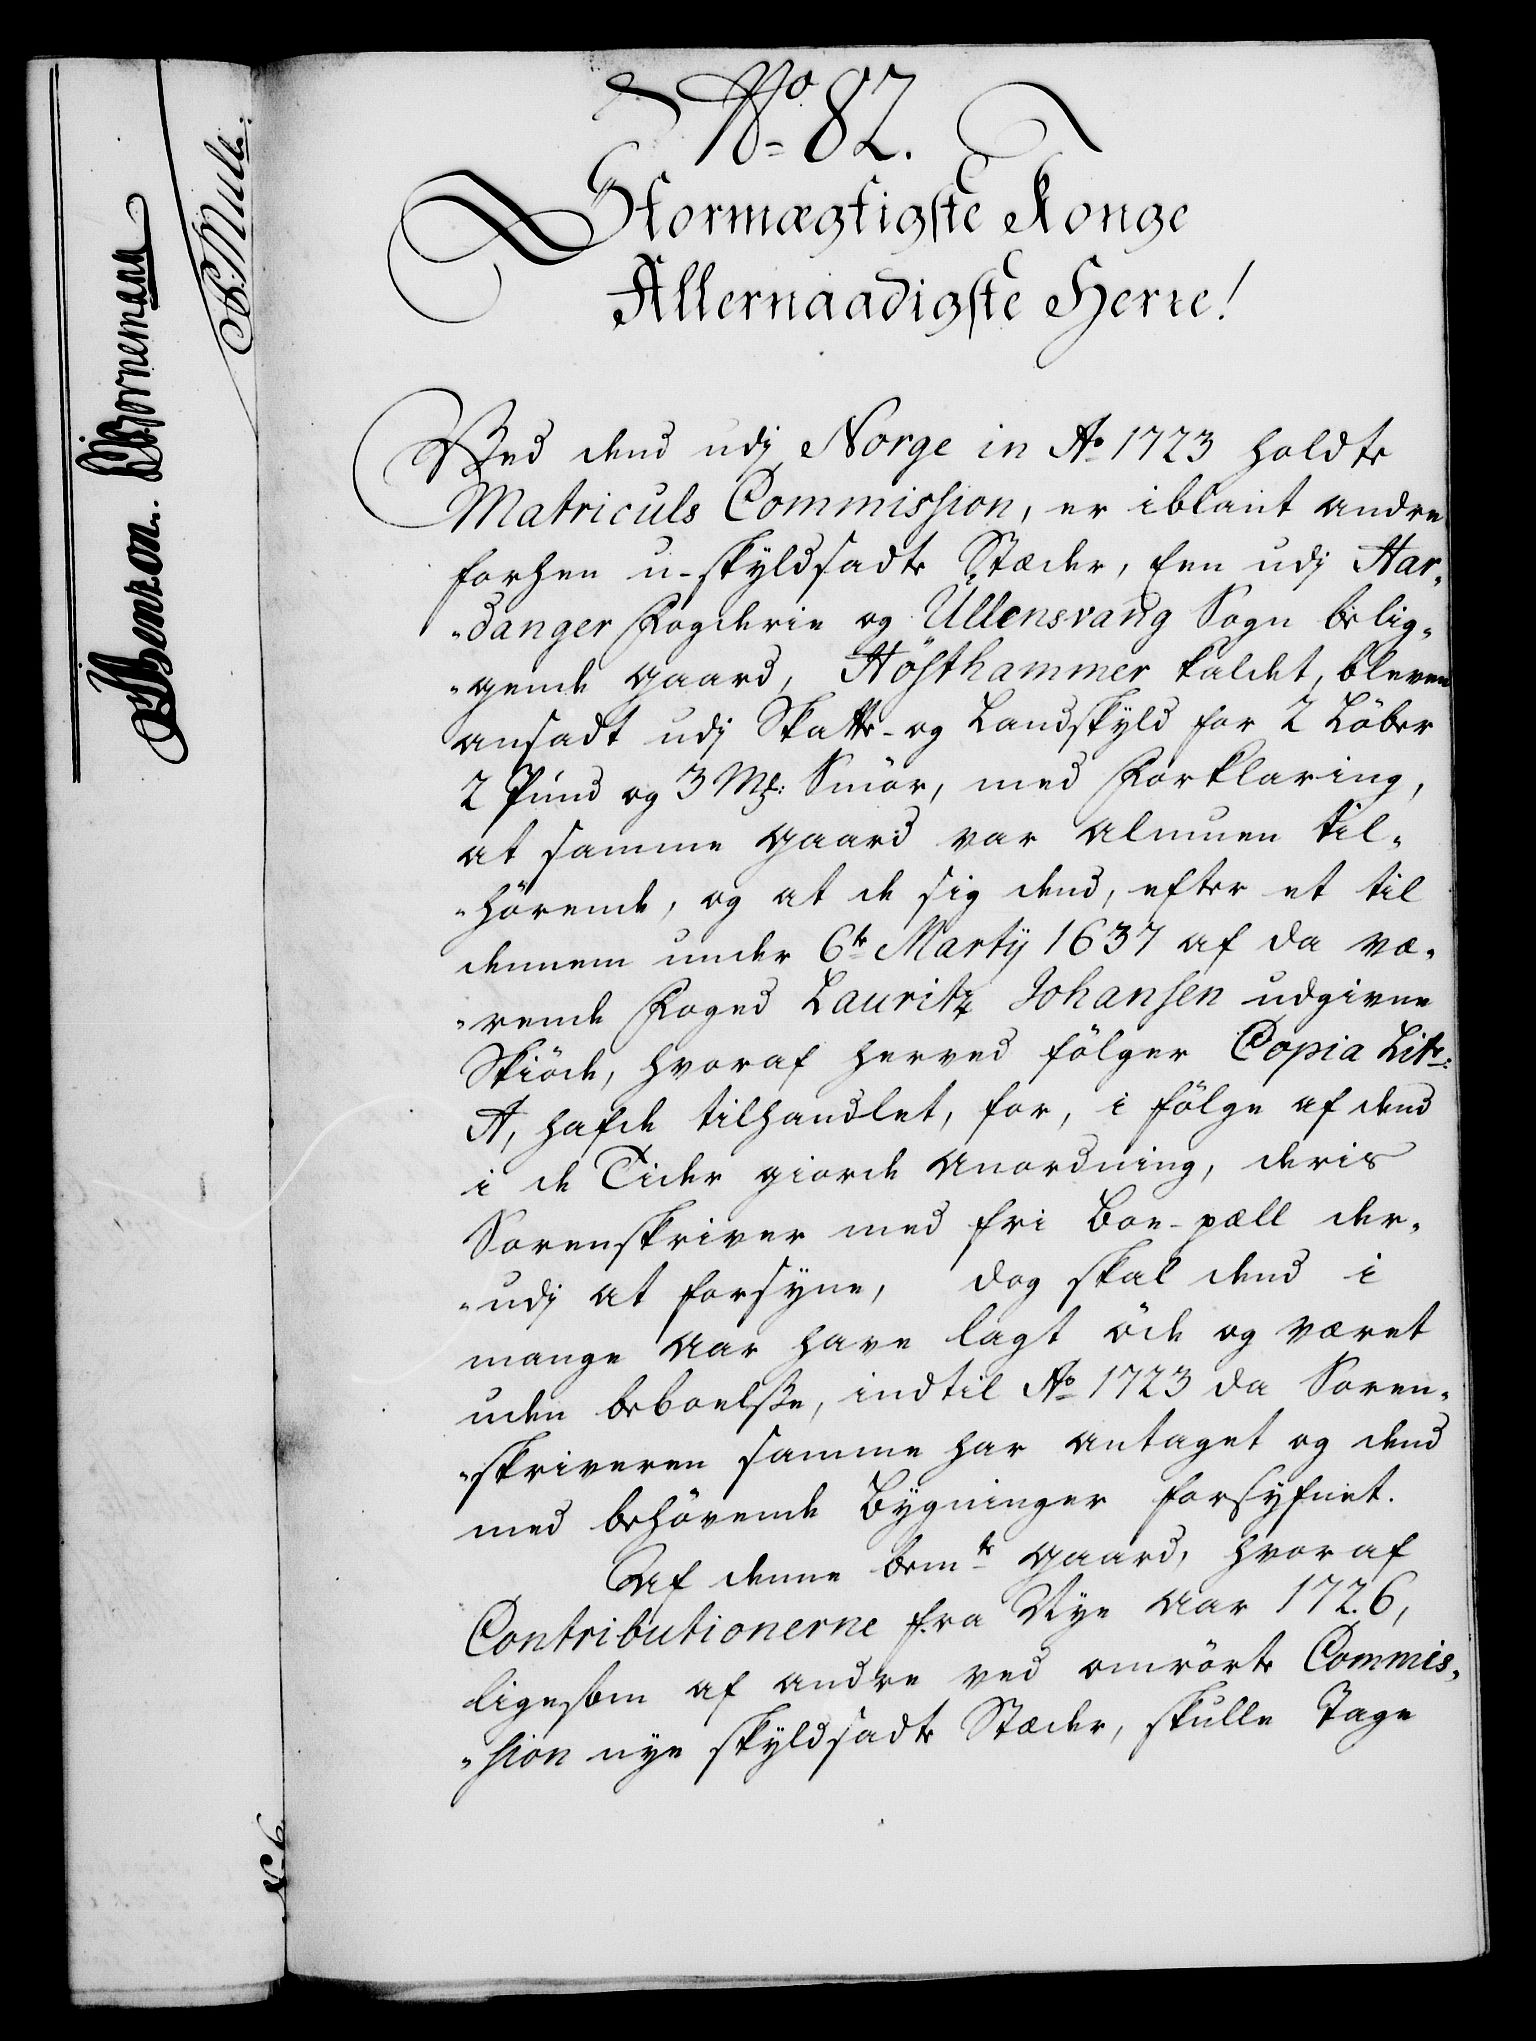 No 82.
Stormægtigste Konge
Allernaadigste Herre!
Ved dend udj Norge in Ao 1723 holdte
Matriculs Commission, er iblant andre
forhen u-skyldsadte Stæder, een udj Har„
„danger Fogderie og Ullensvang Sogn belig„
„gende gaard, Hösthammer kaldet, bleven
ansadt udj Skatte- og Landskyld for 2 Löber
2 Pund og 3 Mk: Smör, med Forklaring,
at samme gaard var almuen til„
„hörende, og at de sig dend, efter et til
dennem under 6te Martij 1637 af da væ„
„rende Foged Lauritz Johansen udgivne
Skiöde, hvoraf herved fölger Copia Litr:
A, hafde tilhandlet, for, i fölge af dend
i de Tider giorde anordning, deris
Sorenskriver med fri Boe-pæll der„
„udj at forsyne, dog skal dend i
mange aar have lagt öde og været
uden beboelsse, indtil Ao 1723 da Soren„
„skriveren samme har antaget og dend
med behövende Bygninger forsyfnet.
Af denne bemte gaard, hvoraf
Contributionerne fra Nye aar 1726,
ligesom af andre ved omrörte Commis„
„sion nye skyldsadte Stæder, skulle Tage
Benzon. Bornemann